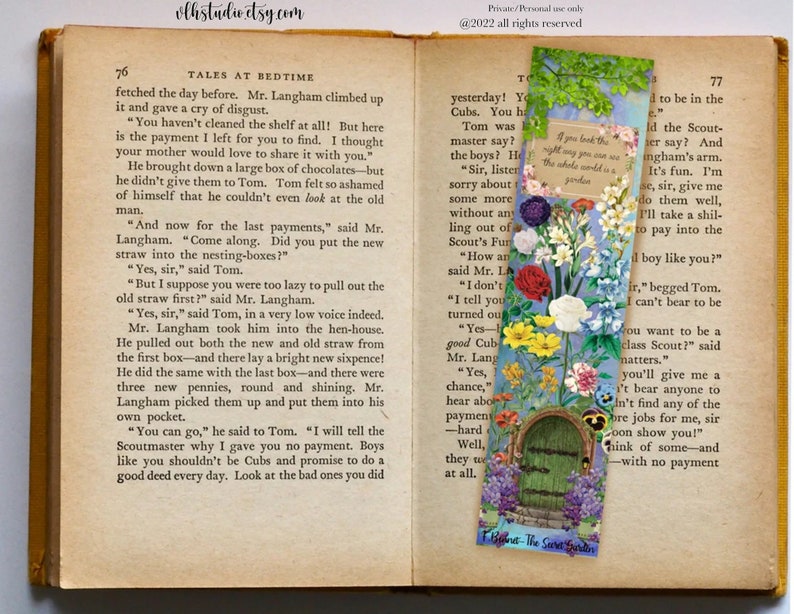 vlhstudio.etsy.com
Private/Personal use only
@2022 all rights reserved
76
TALES AT BEDTIME
fetched the day before. Mr. Langham climbed up
it and gave a cry of disgust.
“You haven't cleaned the shelf at all! But here
is the payment I left for you to find. I thought
your mother would love to share it with you.”
He brought down a large box of chocolates—but
he didn't give them to Tom. Tom felt so ashamed
of himself that he couldn't even look at the old
man.
“And now for the last payments,” said Mr.
Langham. “Come along. Did you put the new
straw into the nesting-boxes?”
“Yes, sir,” said Tom.
“But I suppose you were too lazy to pull out the
old straw first?” said Mr. Langham.
“Yes, sir,” said Tom, in a very low voice indeed.
Mr. Langham took him into the hen-house.
He pulled out both the new and old straw from
the first box—and there lay a bright new sixpence!
He did the same with the last box—and there were
three new pennies, round and shining. Mr.
Langham picked them up and put them into his
own pocket.
“You can go,” he said to Tom. “I will tell the
Scoutmaster why I gave you no payment. Boys
like you shouldn't be Cubs and promise to do a
good deed every day. Look at the bad ones you did
77
yesterday! to be in the
Cubs. You
Tom was the Scout-
master say? say? And
the boys? arm.
“Sir, It's fun. I'm
sorry about sir, give me
some more do them well,
without any I'll take a shil-
ling out of to pay into the
Scout's
“How boy like you?”
said Mr.
“I begged Tom.
“I tell can't bear to be
turned
you want to be a
good class Scout?” said
Mr.
“Yes, you'll give me a
chance,” bear anyone to
hear find any of the
payment jobs for me, sir
show you!”
Well, of some—and
they —with no payment
at all.
If you look the
right way you can see
the whole world is a
garden
F Bennet-The Secret Garden